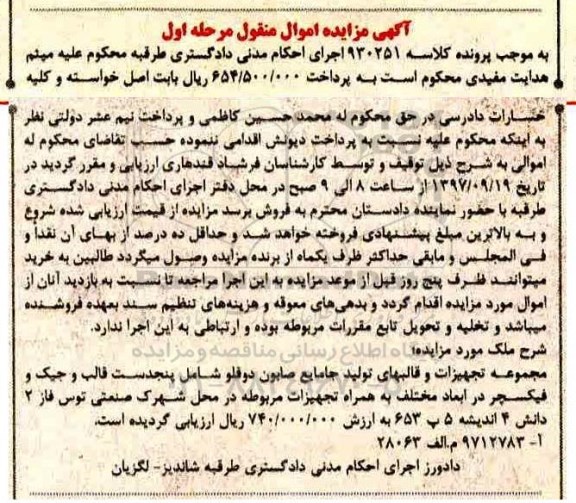 آگهی مزایده اموال منقول مرحله اول
به موجب پرونده کلاسه ۹۳۰۲۵۱ اجرای احکام مدنی دادگستری طرقبه محکوم علیه میثم
هدایت مفیدی محکوم است به پرداخت ۶۵۴/۵۰۰/۰۰۰ ریال بابت اصل خواسته و کلیه
خسارات دادرسی در حق محکوم له محمد حسین کاظمی و پرداخت نیم عشر دولتی نظر
به اینکه محکوم علیه نسبت به پرداخت دیونش اقدامی ننموده حسب تقاضای محکوم له
اموالی به شرح ذیل توقیف و توسط کارشناسان فرشاد قندهاری ارزیابی و مقرر گردید در
تاریخ ۱۳۹۷/۰۹/۱۹ از ساعت ۸ الی ۹ صبح در محل دفتر اجرای احکام مدنی دادگستری
طرقبه با حضور نماینده دادستان محترم به فروش برسد مزایده از قیمت ارزیابی شده شروع
و به بالاترین مبلغ پیشنهادی فروخته خواهد شد و حداقل ده درصد از بهای آن نقداً و
فی المجلس و مابقی حداکثر ظرف یکماه از برنده مزایده وصول میگردد طالبین به خرید
میتوانند ظرف پنج روز قبل از موعد مزایده به این اجرا مراجعه تا نسبت به بازدید آنان از
اموال مورد مزایده اقدام گردد و بدهی‌های معوقه و هزینه‌های تنظیم سند بعهده فروشنده
میباشد و تخلیه و تحویل تابع مقررات مربوطه بوده و ارتباطی به این اجرا ندارد.
شرح ملک مورد مزایده:
مجموعه تجهیزات و قالبهای تولید جامایع صابون دوقلو شامل پنجدست قالب و جیک و
فیکسچر در ابعاد مختلف به همراه تجهیزات مربوطه در محل شهرک صنعتی توس فاز ۲
دانش ۴ اندیشه ۵ پ ۶۵۳ به ارزش ۷۴۰/۰۰۰/۰۰۰ ریال ارزیابی گردیده است.
آ- ۹۷۱۲۷۸۳ م.الف ۲۸۰۶۳
دادورز اجرای احکام مدنی دادگستری طرقبه شاندیز- لگزیان